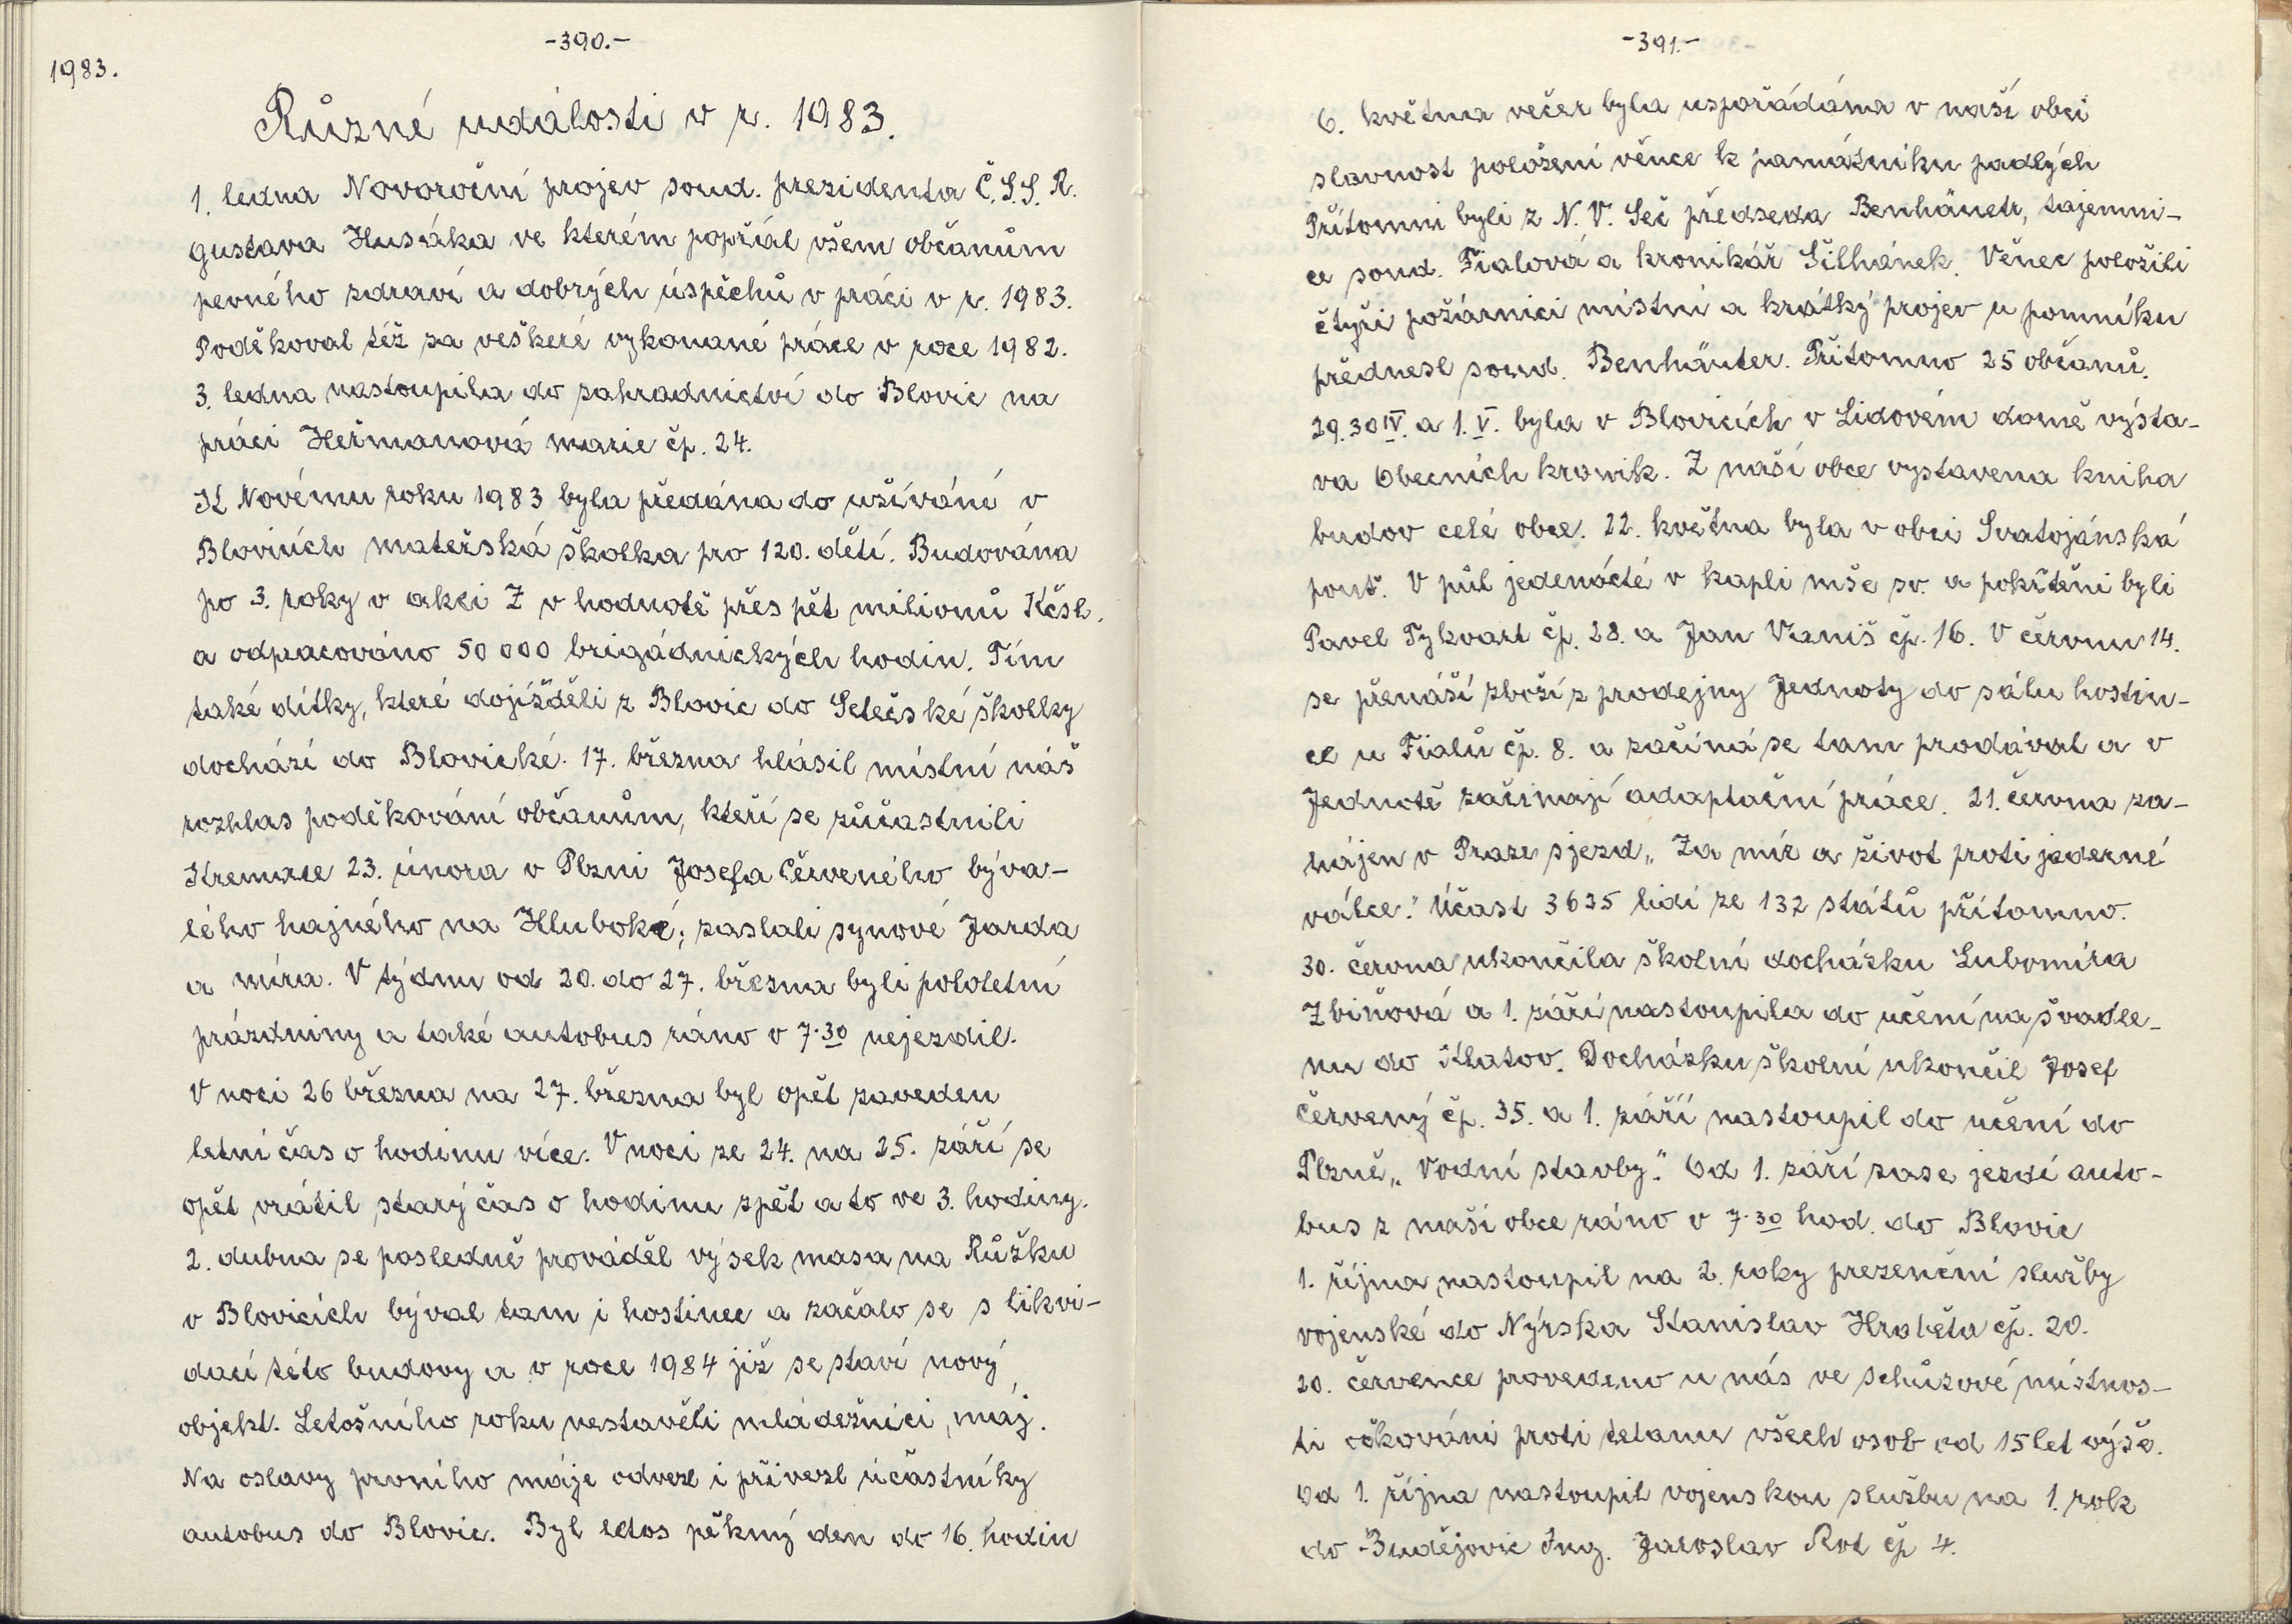 -390.-
1983.
Různé události v r. 1983.
1. ledna Novoroční projev soud. prezidenta Č.S.S.R.
Gustava Husáka ve kterém popřál všem občanům
pevného zdraví a dobrých úspěchů v práci v r. 1983.
Poděkoval též za veškeré vykonané práce v roce 1982.
3. ledna nastoupila do zahradnictví do Blovic na
práci Heřmanová Marie čp. 24.
K Novému roku 1983 byla předána do užívání v
Blovicích mateřská školka pro 120. dětí. Budována
po 3. roky v akci Z v hodnotě přes pět milionů Kčsl.
a odpracováno 50 000 brigádnických hodin. Tím
také dítky, které dojížděli z Blovic do Setečské školky
dochází do Blovické. 17. března hlásil místní náš
rozhlas poděkování občanům, kteří se zúčastnili
Kremace 23. února v Plzni Josefa Červeného býva-
lého hajného na Hluboké; zaslali synové Jarda
a Míra. V týdnu od 20. do 27. března byli pololetní
prázdniny a také autobus ráno v 7.30 nejezdil.
V noci 26 března na 27. března byl opět zaveden
letní čas o hodinu více. V noci ze 24. na 25. září se
opět vrátil starý čas o hodinu zpět a to ve 3. hodiny.
2. dubna se posledně prováděl výsek masa na Růžku
v Blovicích býval tam i hostinec a začalo se s likvi-
dací této budovy a v roce 1984 již se staví nový
objekt. Letošního roku nestavěli mládežníci máj.
Na oslavy prvního máje odvezl i přivezl účastníky
autobus do Blovic. Byl letos pěkný den do 16. hodin
-391.-
6. května večer byla uspořádána v naší obci
slavnost položení věnce k památníku padlých
Přítomni byli z N.V. Seč předseda Benhäuetr, tajemni-
ce soud. Fialová a kronikář Šilhánek. Věnec položili
čtyři požárníci místní a krátký projev u pomníku
přednesl soud. Benhäuter. Přítomno 25 občanů.
29. 30 IV. a 1. V. byla v Blovicích v Lidovém domě výsta-
va Obecních kronik. Z naší obce vystavena kniha
budov celé obce. 22. května byla v obci Svatojánská
pouť. V půl jedenácté v kapli mše sv. a pokřtěni byli
Pavel Tykvart čp. 28. a Jan Vraniš čp. 16. V červnu 14.
se přenáší zboží z prodejny Jednoty do sálu hostin-
ce u Fialů čp. 8. a začíná se tam prodávat a v
Jednotě začínají adaptační práce. 21. června za-
hájen v Praze sjezd „Za mír a život proti jaderné
válce." Účast 3625 lidí ze 132 států přítomno.
30. června ukončila školní docházku Lubomíra
Zbiňová a 1. září nastoupila do učení na švadle-
nu do Klatov. Docházku školní ukončil Josef
Červený čp. 35. a 1. září nastoupil do učení do
Plzně „Vodní stavby." Od 1. září zase jezdí auto-
bus z naší obce ráno v 7.30 hod. do Blovic
1. října nastoupil na 2. roky prezenční služby
vojenské do Nýrska Stanislav Hraběta čp. 20.
20. července provedeno u nás ve schůzové místnos-
ti očkování proti tetanu všech osob od 15 let výše.
Od 1. října nastoupil vojenskou službu na 1. rok
do Budějovic Ing. Jaroslav Rot čp 4.